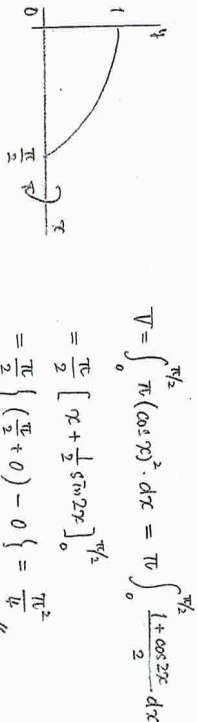 y
1
0
π/2
x
V = ∫₀^{π/2} π(cos x)²·dx = π ∫₀^{π/2} (1+cos2x)/2 dx
= π/2 [x + 1/2 sin2x]₀^{π/2}
= π/2 {(π/2 + 0) − 0} = π²/4 〃